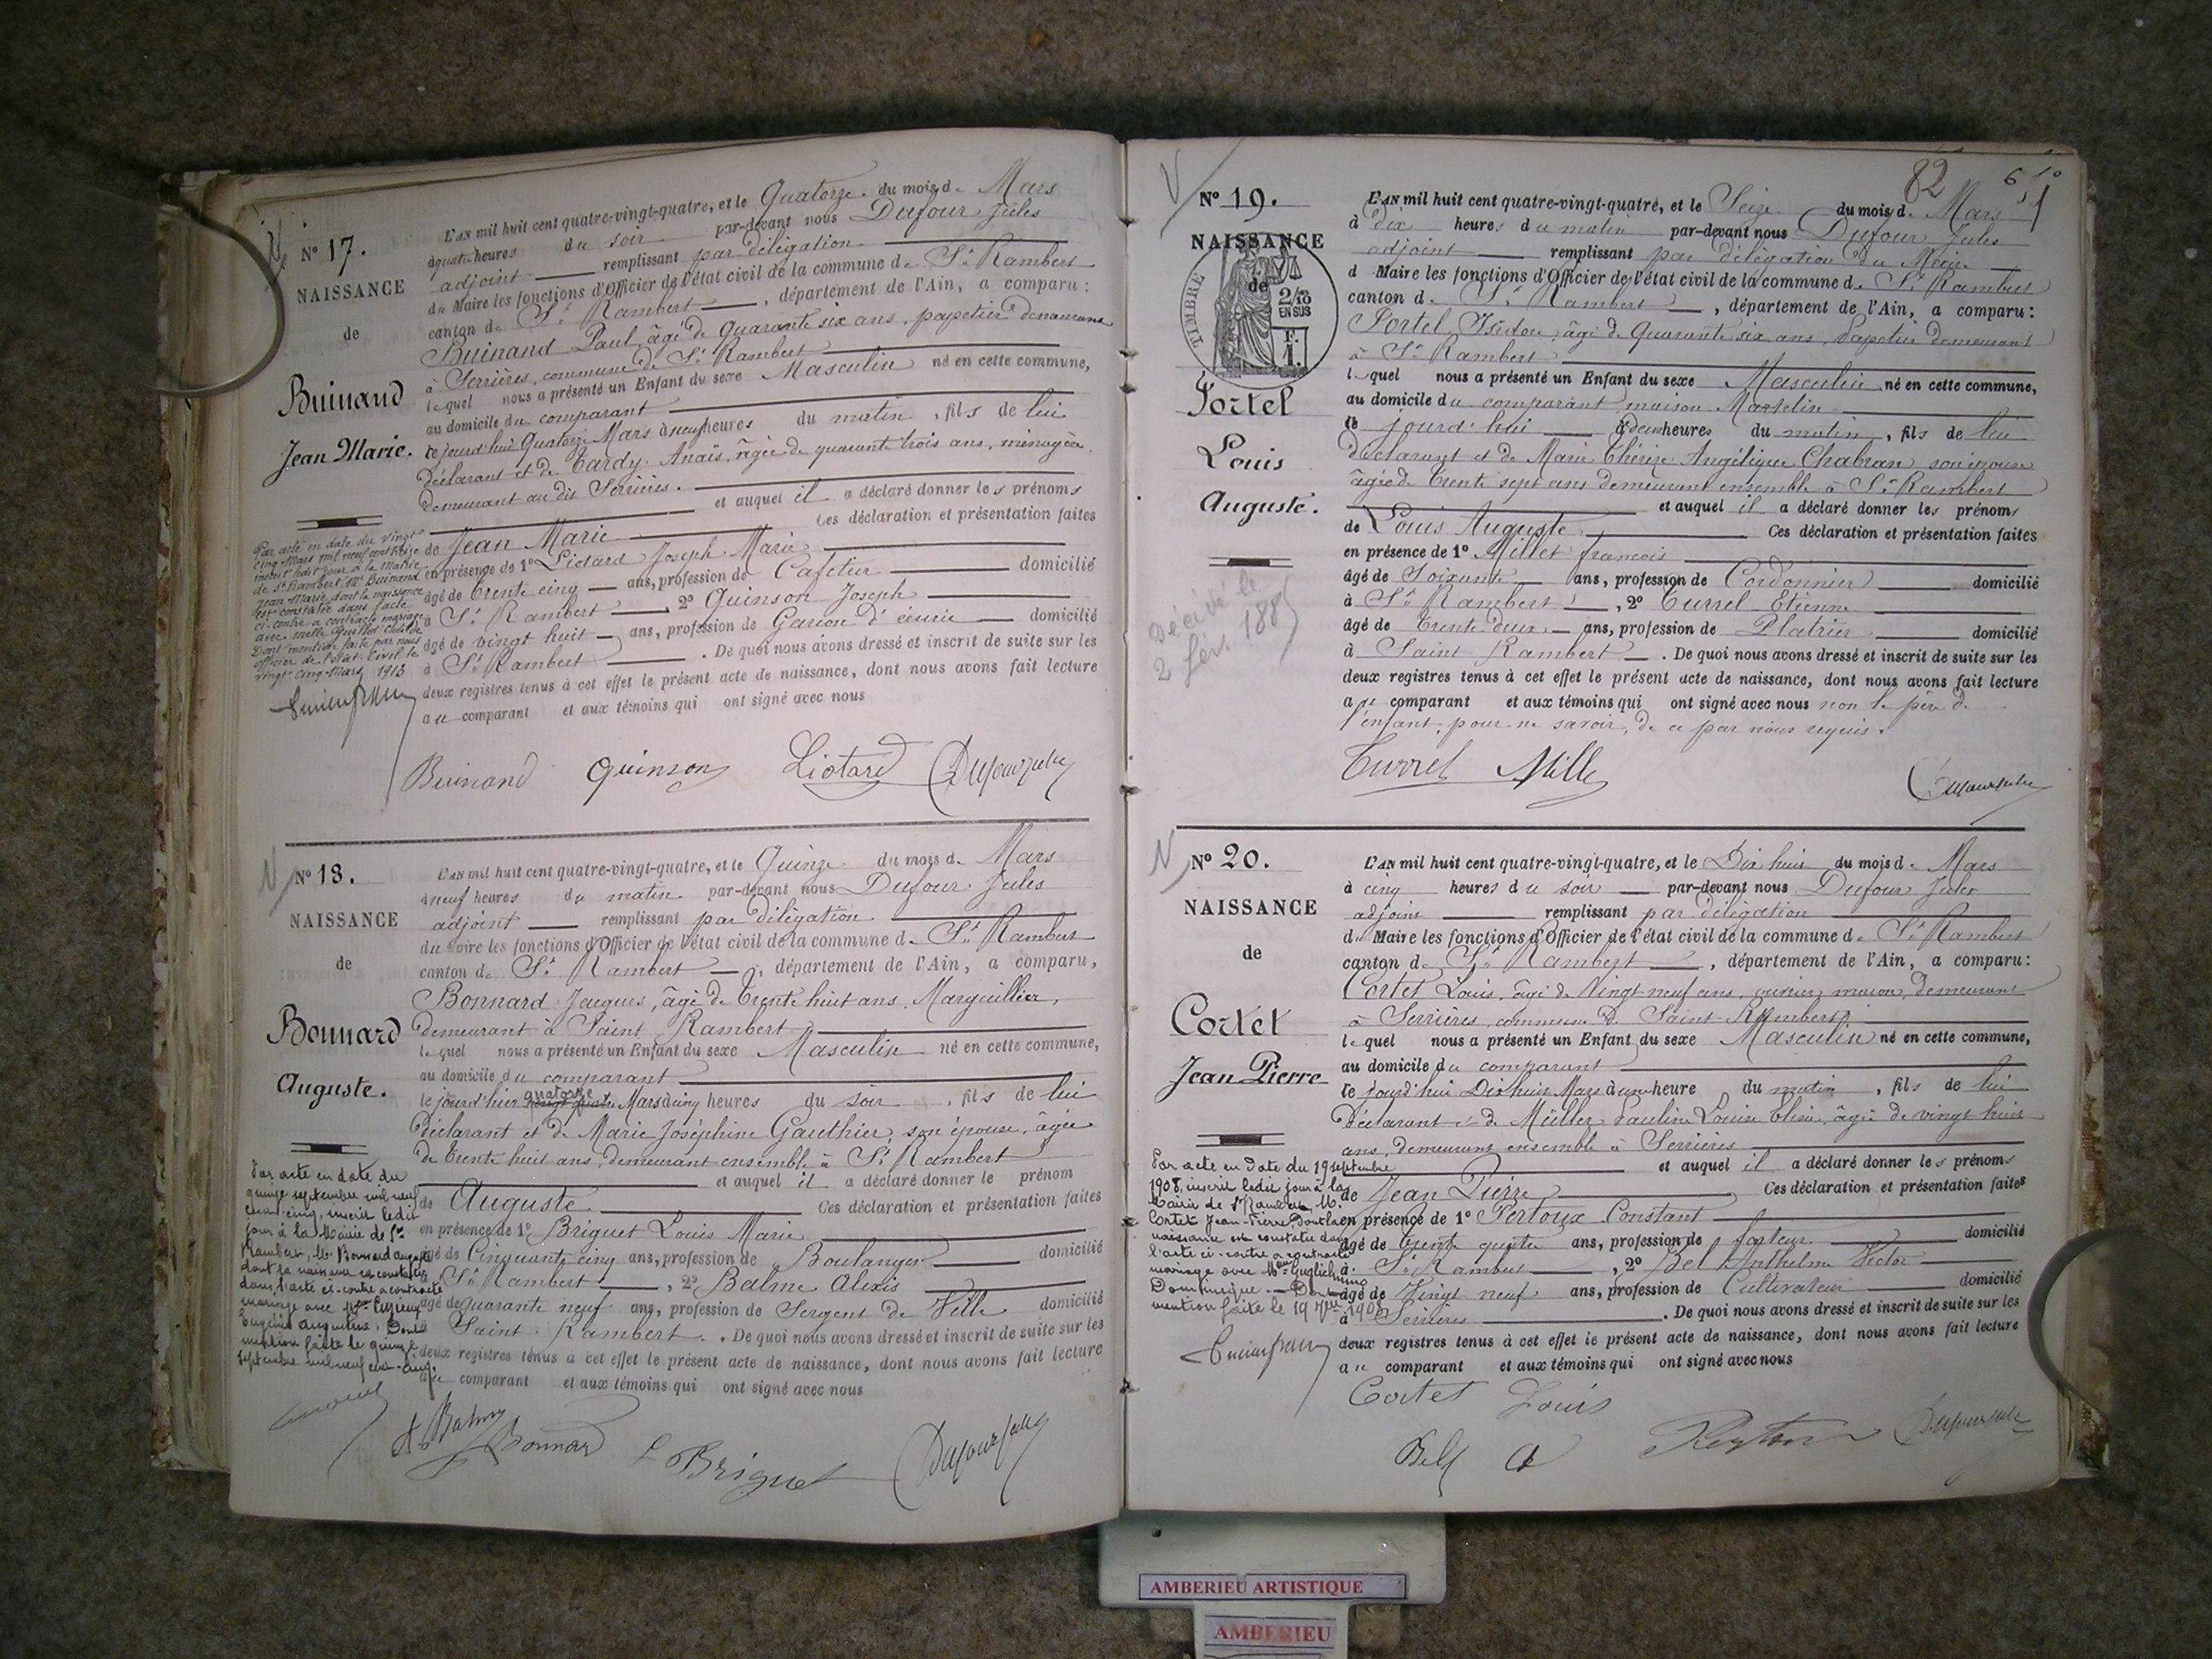 N° 17.
NAISSANCE
de
Buinand
Jean Marie.
L'AN mil huit cent quatre-vingt-quatre, et le Quatorze du mois de Mars
à quatre heures du soir par-devant nous Dufour Jules
adjoint remplissant par délégation
du Maire les fonctions d'Officier de l'état civil de la commune de St Rambert
canton de St Rambert, département de l'Ain, a comparu :
Buinand Paul, âgé de Quarante six ans, papetier demeurant
à Serrières, commune de St Rambert
lequel nous a présenté un Enfant du sexe Masculin né en cette commune,
au domicile du comparant
cejourd'hui Quatorze Mars à neuf heures du matin, fils de lui
déclarant et de Tardy Anaïs, âgée de quarante trois ans, ménagère
demeurant au dit Serrières.
et auquel il a déclaré donner les prénoms
de Jean Marie Ces déclaration et présentation faites
en présence de 1° Liotard Joseph Marie
âgé de trente cinq ans, profession de Cafetier domicilié
à St Rambert, 2° Quinson Joseph
âgé de vingt huit ans, profession de Garçon d'écurie domicilié
à St Rambert. De quoi nous avons dressé et inscrit de suite sur les
deux registres tenus à cet effet le présent acte de naissance, dont nous avons fait lecture
au comparant et aux témoins qui ont signé avec nous
Par acte en date du vingt
cinq Mars mil neuf cent treize
inscrit ledit jour à la Mairie
de St Rambert, Mr Buinand
Jean Marie dont la naissance
est constatée dans l'acte
ci-contre a contracté mariage
avec Melle Guillot Clotilde
Dont mention faite par nous
officier de l'état civil le
vingt-cinq Mars 1913
Buinand Quinson Liotard Dufour Jules
N° 18.
NAISSANCE
de
Bonnard
Auguste.
L'AN mil huit cent quatre-vingt-quatre, et le Quinze du mois de Mars
à neuf heures du matin par-devant nous Dufour Jules
adjoint remplissant par délégation
du Maire les fonctions d'Officier de l'état civil de la commune de St Rambert
canton de St Rambert, département de l'Ain, a comparu,
Bonnard Jacques, âgé de trente huit ans, Marguillier,
demeurant à Saint Rambert
lequel nous a présenté un Enfant du sexe Masculin né en cette commune,
au domicile du comparant
le jourd'hier quatorze Mars à cinq heures du soir, fils de lui
déclarant et de Marie Joséphine Gauthier, son épouse, âgée
de trente huit ans, demeurant ensemble à St Rambert
et auquel il a déclaré donner le prénom
de Auguste Ces déclaration et présentation faites
en présence de 1° Briguet Louis Marie
âgé de Cinquante cinq ans, profession de Boulanger domicilié
St Rambert, 2° Balme Alexis
âgé de quarante neuf ans, profession de Sergent de Ville domicilié
Saint Rambert. De quoi nous avons dressé et inscrit de suite sur les
deux registres tenus à cet effet le présent acte de naissance, dont nous avons fait lecture
au comparant et aux témoins qui ont signé avec nous
Par acte en date du
quinze septembre mil neuf
cent-cinq, inscrit ledit
jour à la Mairie de St
Rambert, Mr Bonnard Auguste
dont la naissance est constatée
dans l'acte ci-contre a contracté
mariage avec
Eugénie Augustine. Dont
mention faite le quinze
septembre mil neuf cent-cinq.
Balme Bonnard L Briguet Dufour Jules
82
N° 19.
NAISSANCE
de
TIMBRE
2/10
EN SUS
F.
1.
Portel
Louis
Auguste.
Décédé le
2 fév. 1885
L'AN mil huit cent quatre-vingt-quatre, et le Seize du mois de Mars
à dix heures du matin par-devant nous Dufour Jules
adjoint remplissant par délégation du Maire
d Maire les fonctions d'Officier de l'état civil de la commune de St Rambert
canton de St Rambert, département de l'Ain, a comparu :
Portel Isidore, âgé de Quarante six ans, Papetier demeurant
à St Rambert
lequel nous a présenté un Enfant du sexe Masculin né en cette commune,
au domicile du comparant maison Masselin
ce jourd'hui à deux heures du matin, fils de lui
déclarant et de Marie Thérèze Angélique Chabran son épouse
âgée de trente sept ans demeurant ensemble à St Rambert
et auquel il a déclaré donner les prénoms
de Louis Auguste Ces déclaration et présentation faites
en présence de 1° Millet françois
âgé de Soixante ans, profession de Cordonnier domicilié
à St Rambert, 2° Turrel Etienne
âgé de trente deux ans, profession de Platrier domicilié
à Saint Rambert. De quoi nous avons dressé et inscrit de suite sur les
deux registres tenus à cet effet le présent acte de naissance, dont nous avons fait lecture
au comparant et aux témoins qui ont signé avec nous non le père de
l'enfant, pour ne savoir, de ce par nous requis.
Turrel Millet Dufour Jules
N° 20.
NAISSANCE
de
Cortet
Jean Pierre
L'AN mil huit cent quatre-vingt-quatre, et le Dix huit du mois de Mars
à cinq heures du soir par-devant nous Dufour Jules
adjoint remplissant par délégation
du Maire les fonctions d'Officier de l'état civil de la commune de St Rambert
canton de St Rambert, département de l'Ain, a comparu :
Cortet Louis, âgé de Vingt neuf ans, ouvrier maçon, demeurant
à Serrières, commune de Saint Rambert
lequel nous a présenté un Enfant du sexe Masculin né en cette commune,
au domicile du comparant
ce jourd'hui Dix huit Mars à une heure du matin, fils de lui
déclarant et de Müller Pauline Louise Elisa, âgée de vingt huit
ans, demeurant ensemble à Serrières
et auquel il a déclaré donner les prénoms
de Jean Pierre Ces déclaration et présentation faites
en présence de 1° Pertoux Constant
âgé de trente quatre ans, profession de facteur domicilié
à St Rambert, 2° Bel Anthelme Victor
âgé de Vingt neuf ans, profession de Cultivateur domicilié
à Serrières. De quoi nous avons dressé et inscrit de suite sur les
deux registres tenus à cet effet le présent acte de naissance, dont nous avons fait lecture
au comparant et aux témoins qui ont signé avec nous
Par acte en date du 19 septembre
1908, inscrit ledit jour à la
Mairie de St Rambert, M.
Cortet Jean-Pierre, dont la
naissance est constatée dans
l'acte ci-contre a contracté
mariage avec Guglielmino
Dominique. Dont
mention faite le 19 7bre 1908
Cortet Louis
AMBERIEU ARTISTIQUE
AMBERIEU